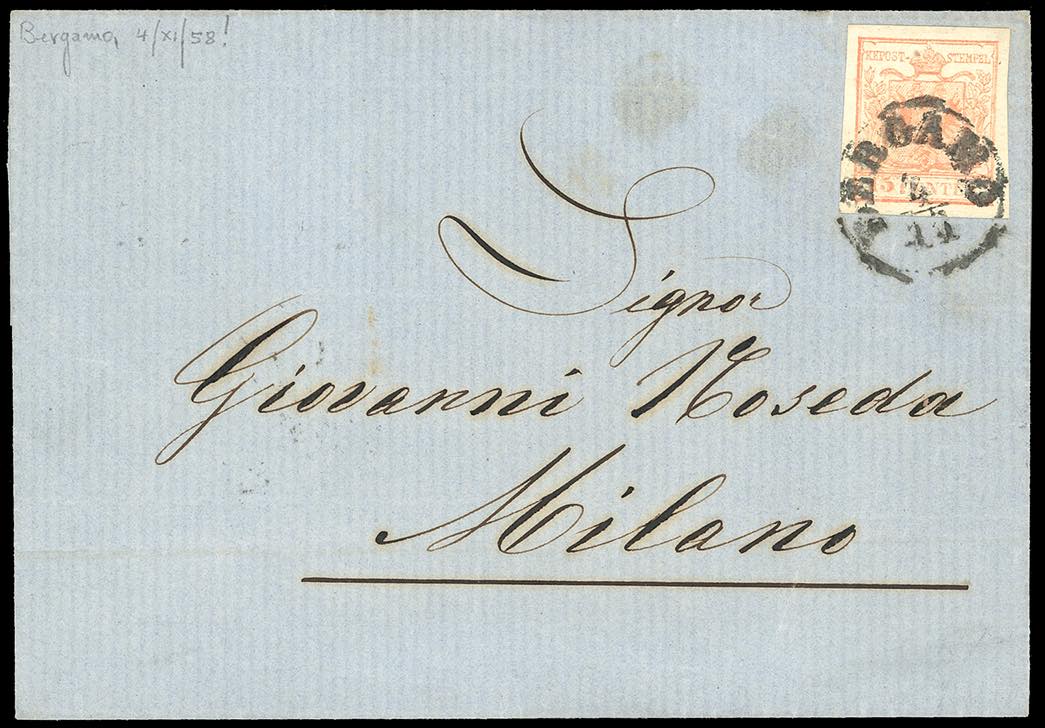 Bergamo, 4/XI/58!
KKPOST-STEMPEL
BERGAMO
4
11
Signor
Giovanni Noseda
Milano